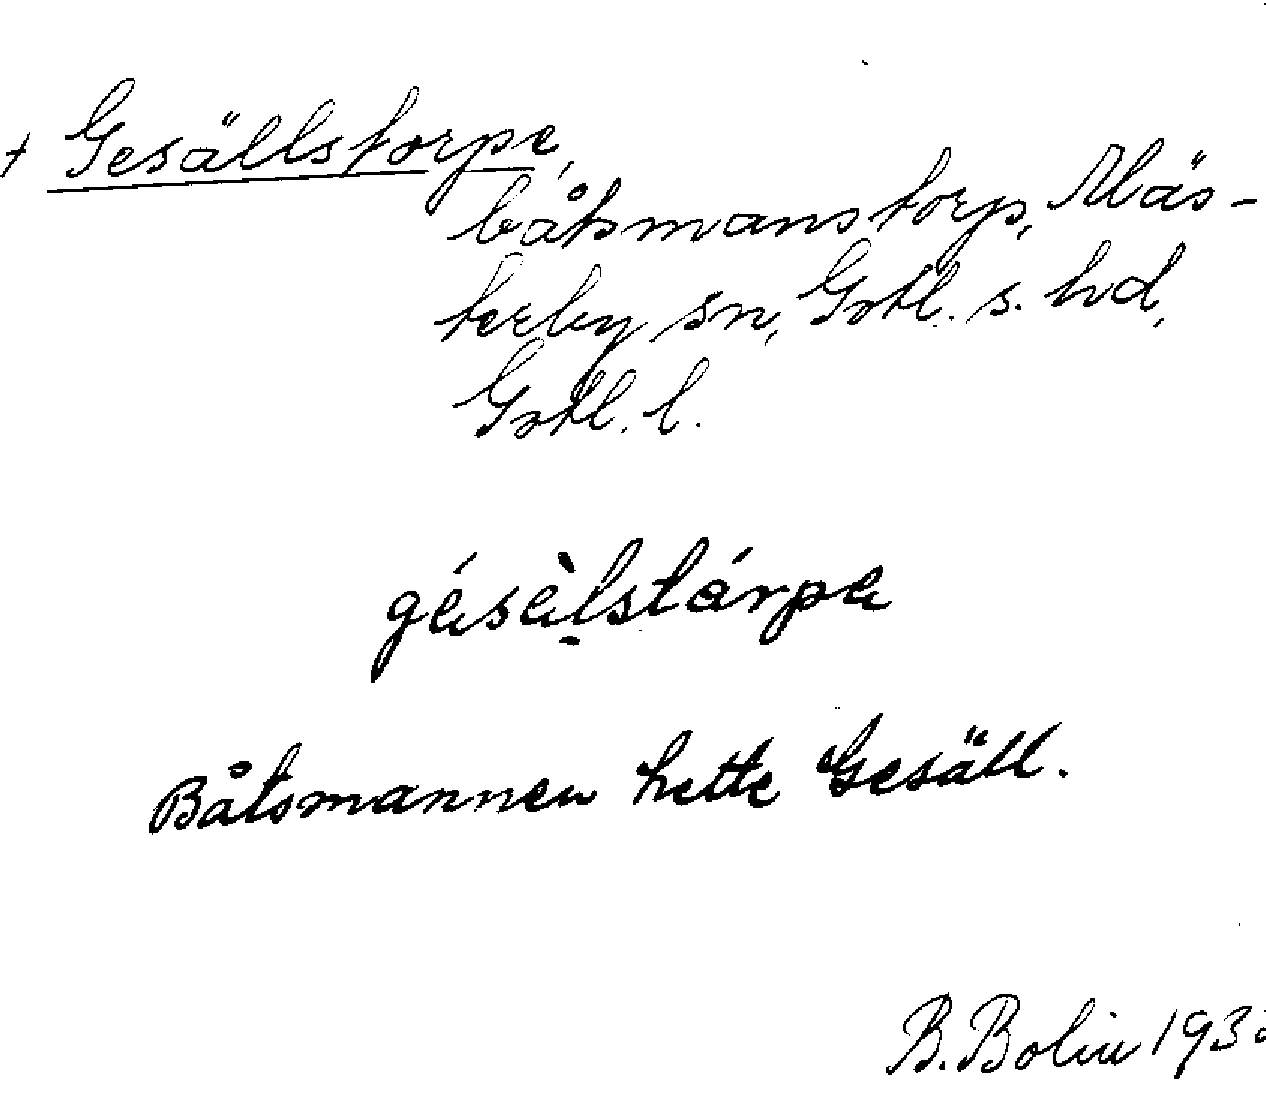 + Gesällstorpe,
båtsmanstorp, Mäs-
terby sn, Gotl. s. hd,
Gotl. l.
gésèlstárpe
Båtsmannen hette Gesäll.
B. Bolin 193